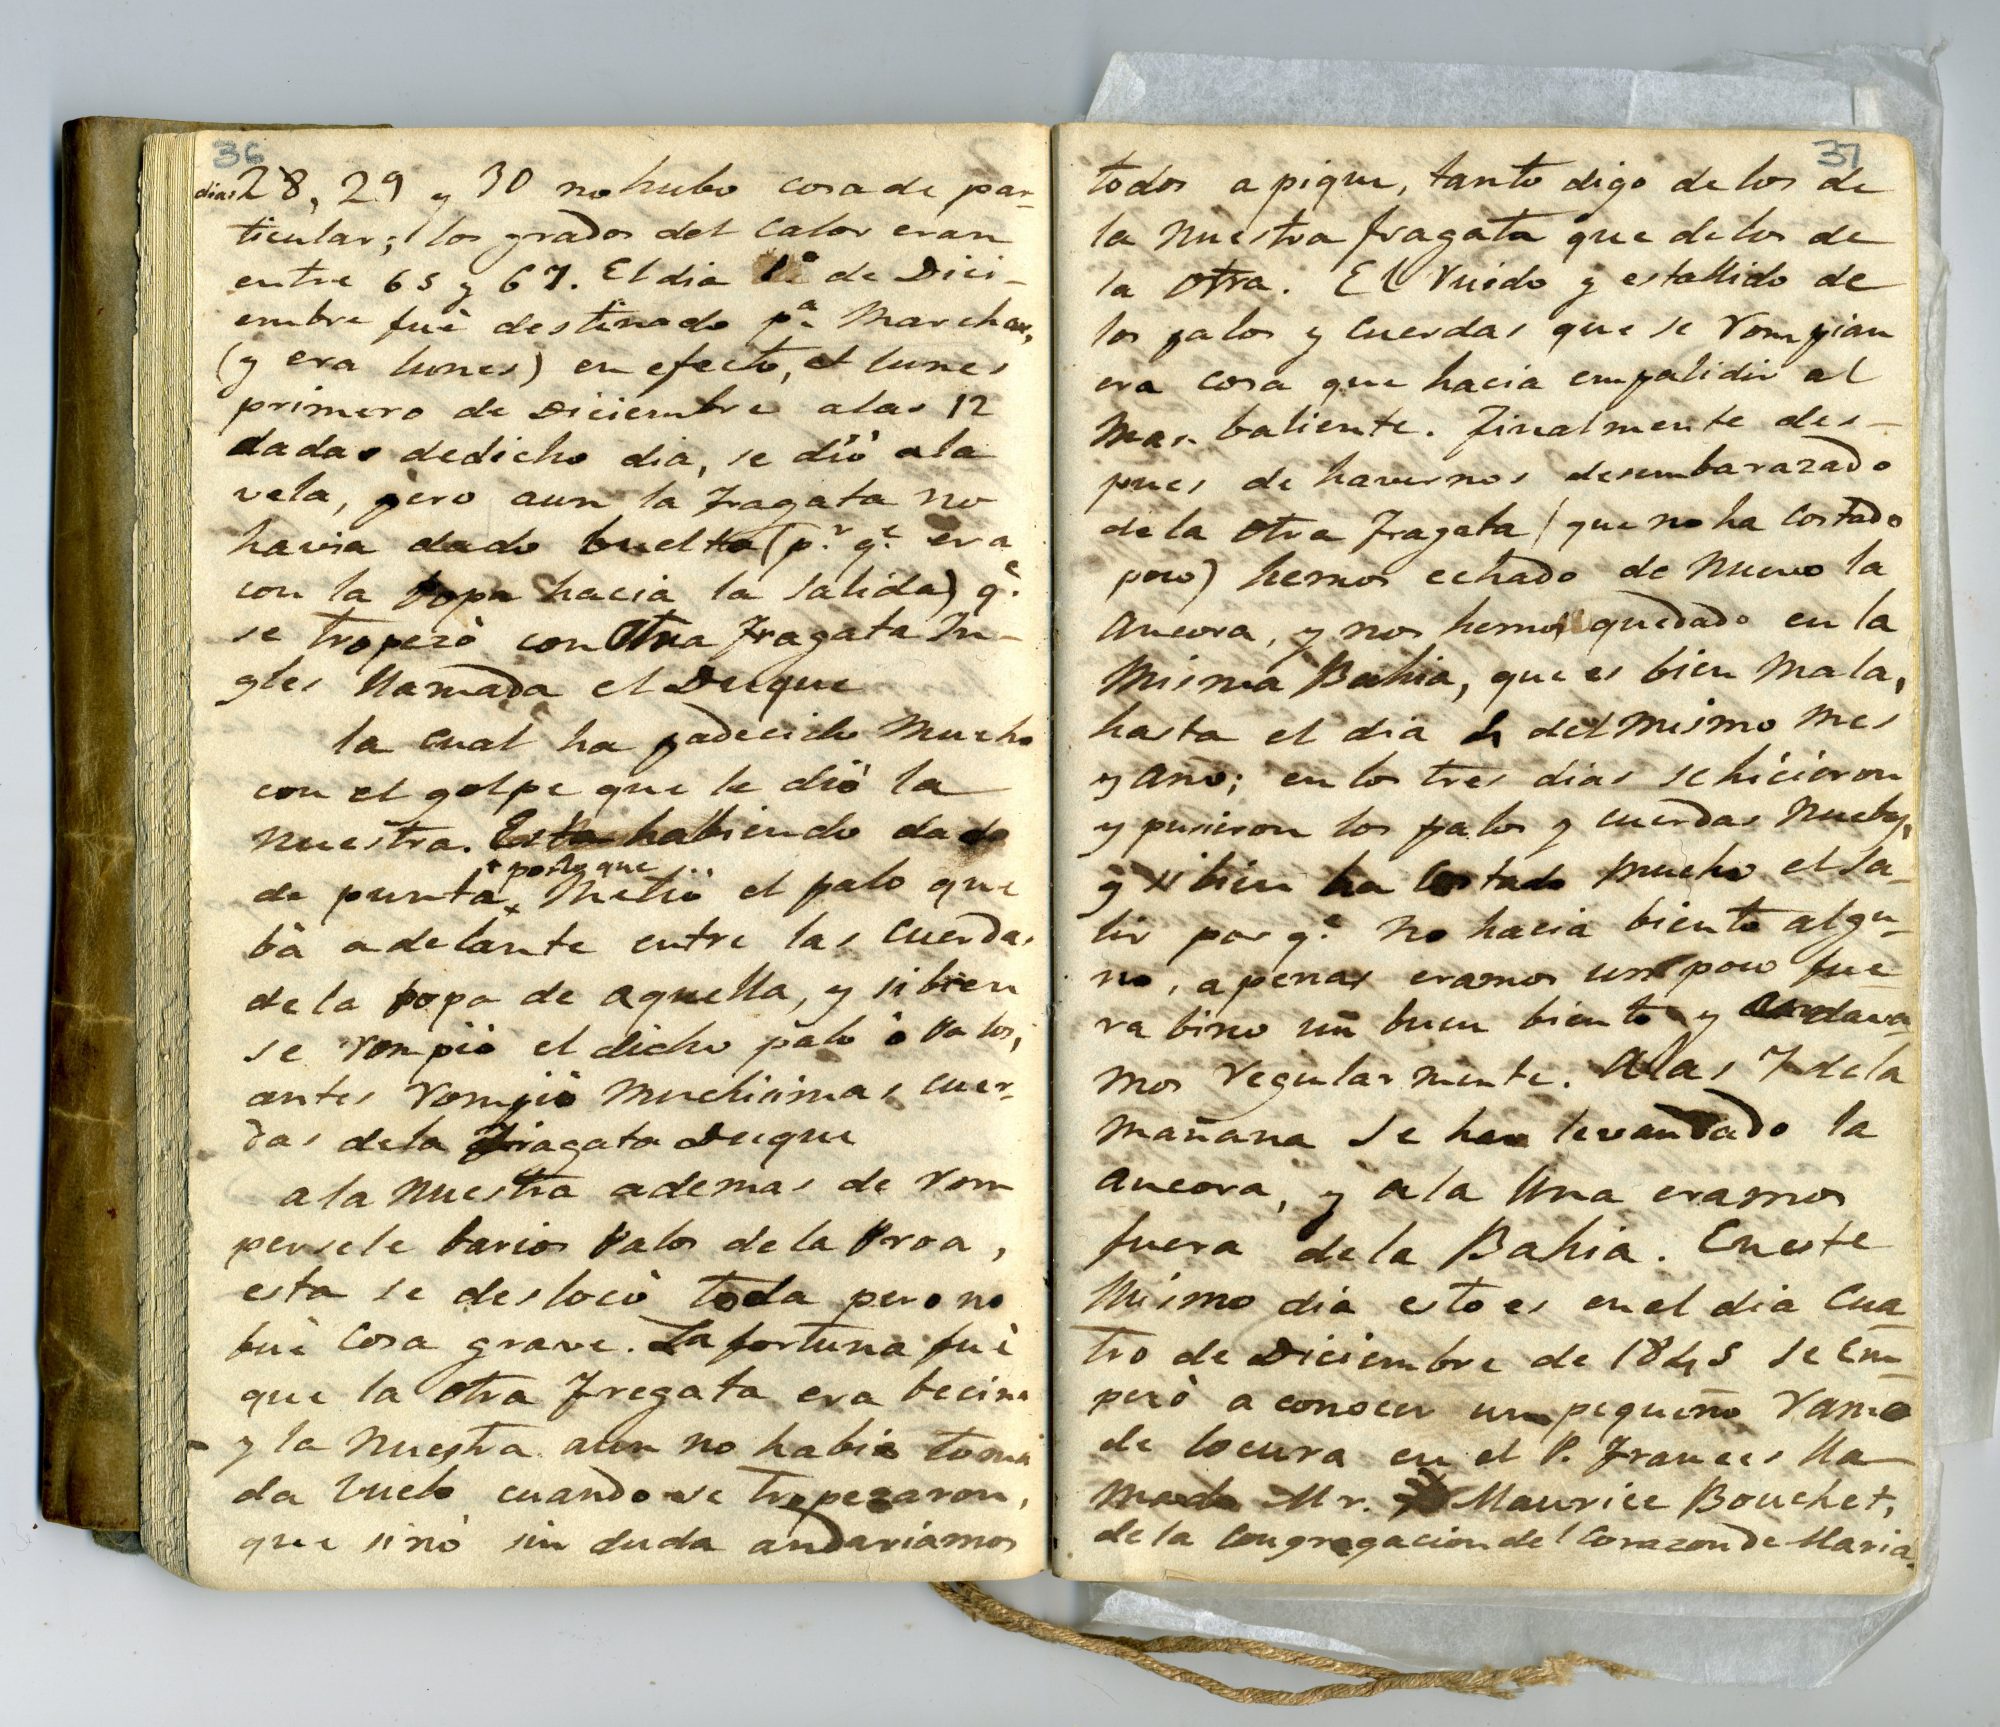 36
dias 28, 29 y 30 no hubo cosa de par-
ticular; los grados del Calor eran
entre 65 y 67. El dia 1º de Dici-
embre fuè destinado pª Marchar,
(y era lunes) en efecto, el lunes
primero de Diciembre alas 12
dadas dedicho dia, se diò ala
vela, pero aun la Fragata no
havia dado buelta (p.r q.e era
con la popa hacia la salida) q.e
se tropezò con Otra Fragata In-
gles llamada el Duque
la cual ha padecido Mucho
con el golpe que le diò la
nuestra. Esta habiendo dado
de punta, Metiò el palo que
+ porlo que
bà adelante entre las cuerdas
de la popa de aquella, y sibien
se rompiò el dicho palo ò palos,
antes rompiò Muchisimas cuer-
das dela Fragata Duque
ala Nuestra ademas de rom
persele barios Palos de la Proa,
esta se deslocò toda pero no
buè Cosa grave. La fortuna fuè
que la otra Fregata era becina
y la Nuestra aun no habia toma
da buelo cuando se tropezaron,
que sinò sin duda andariamos
37
todos a pique, tanto digo de los de
la Nuestra fragata que delos de
la Otra. El Ruido y estallido de
los palos y Cuerdas que se rompian
era cosa que hacia empalidir al
Mas baliente. Finalmente des-
pues de havernos desembarazado
de la Otra Fragata (que no ha Costado
poco) hemos echado de Nuevo la
Ancora, y nos hemos quedado en la
Misma Bahia, que es bien Mala,
hasta el dia 4 del Mismo Mes
y Año; en los tres dias se hicieron
y pusieron los palos y cuerdas Nuebos,
y si bien ha Costado Mucho el sa-
lir por q.e No hacia biento algu-
no, apenas eramos un poco fue-
ra bino un buen biento y andava
mos regularmente. Alas 7 de la
Mañana se ha levantado la
Ancora, y ala Una eramos
fuera de la Bahia. Eneste
Mismo dia esto es en el dia Cua
tro de Diciembre de 1845 se Em-
pezò a conocer un pequeño ramo
de locura en el P. Frances lla-
mado Mr. Maurice Bouchet,
de la Congregacion del Corazon de Maria.